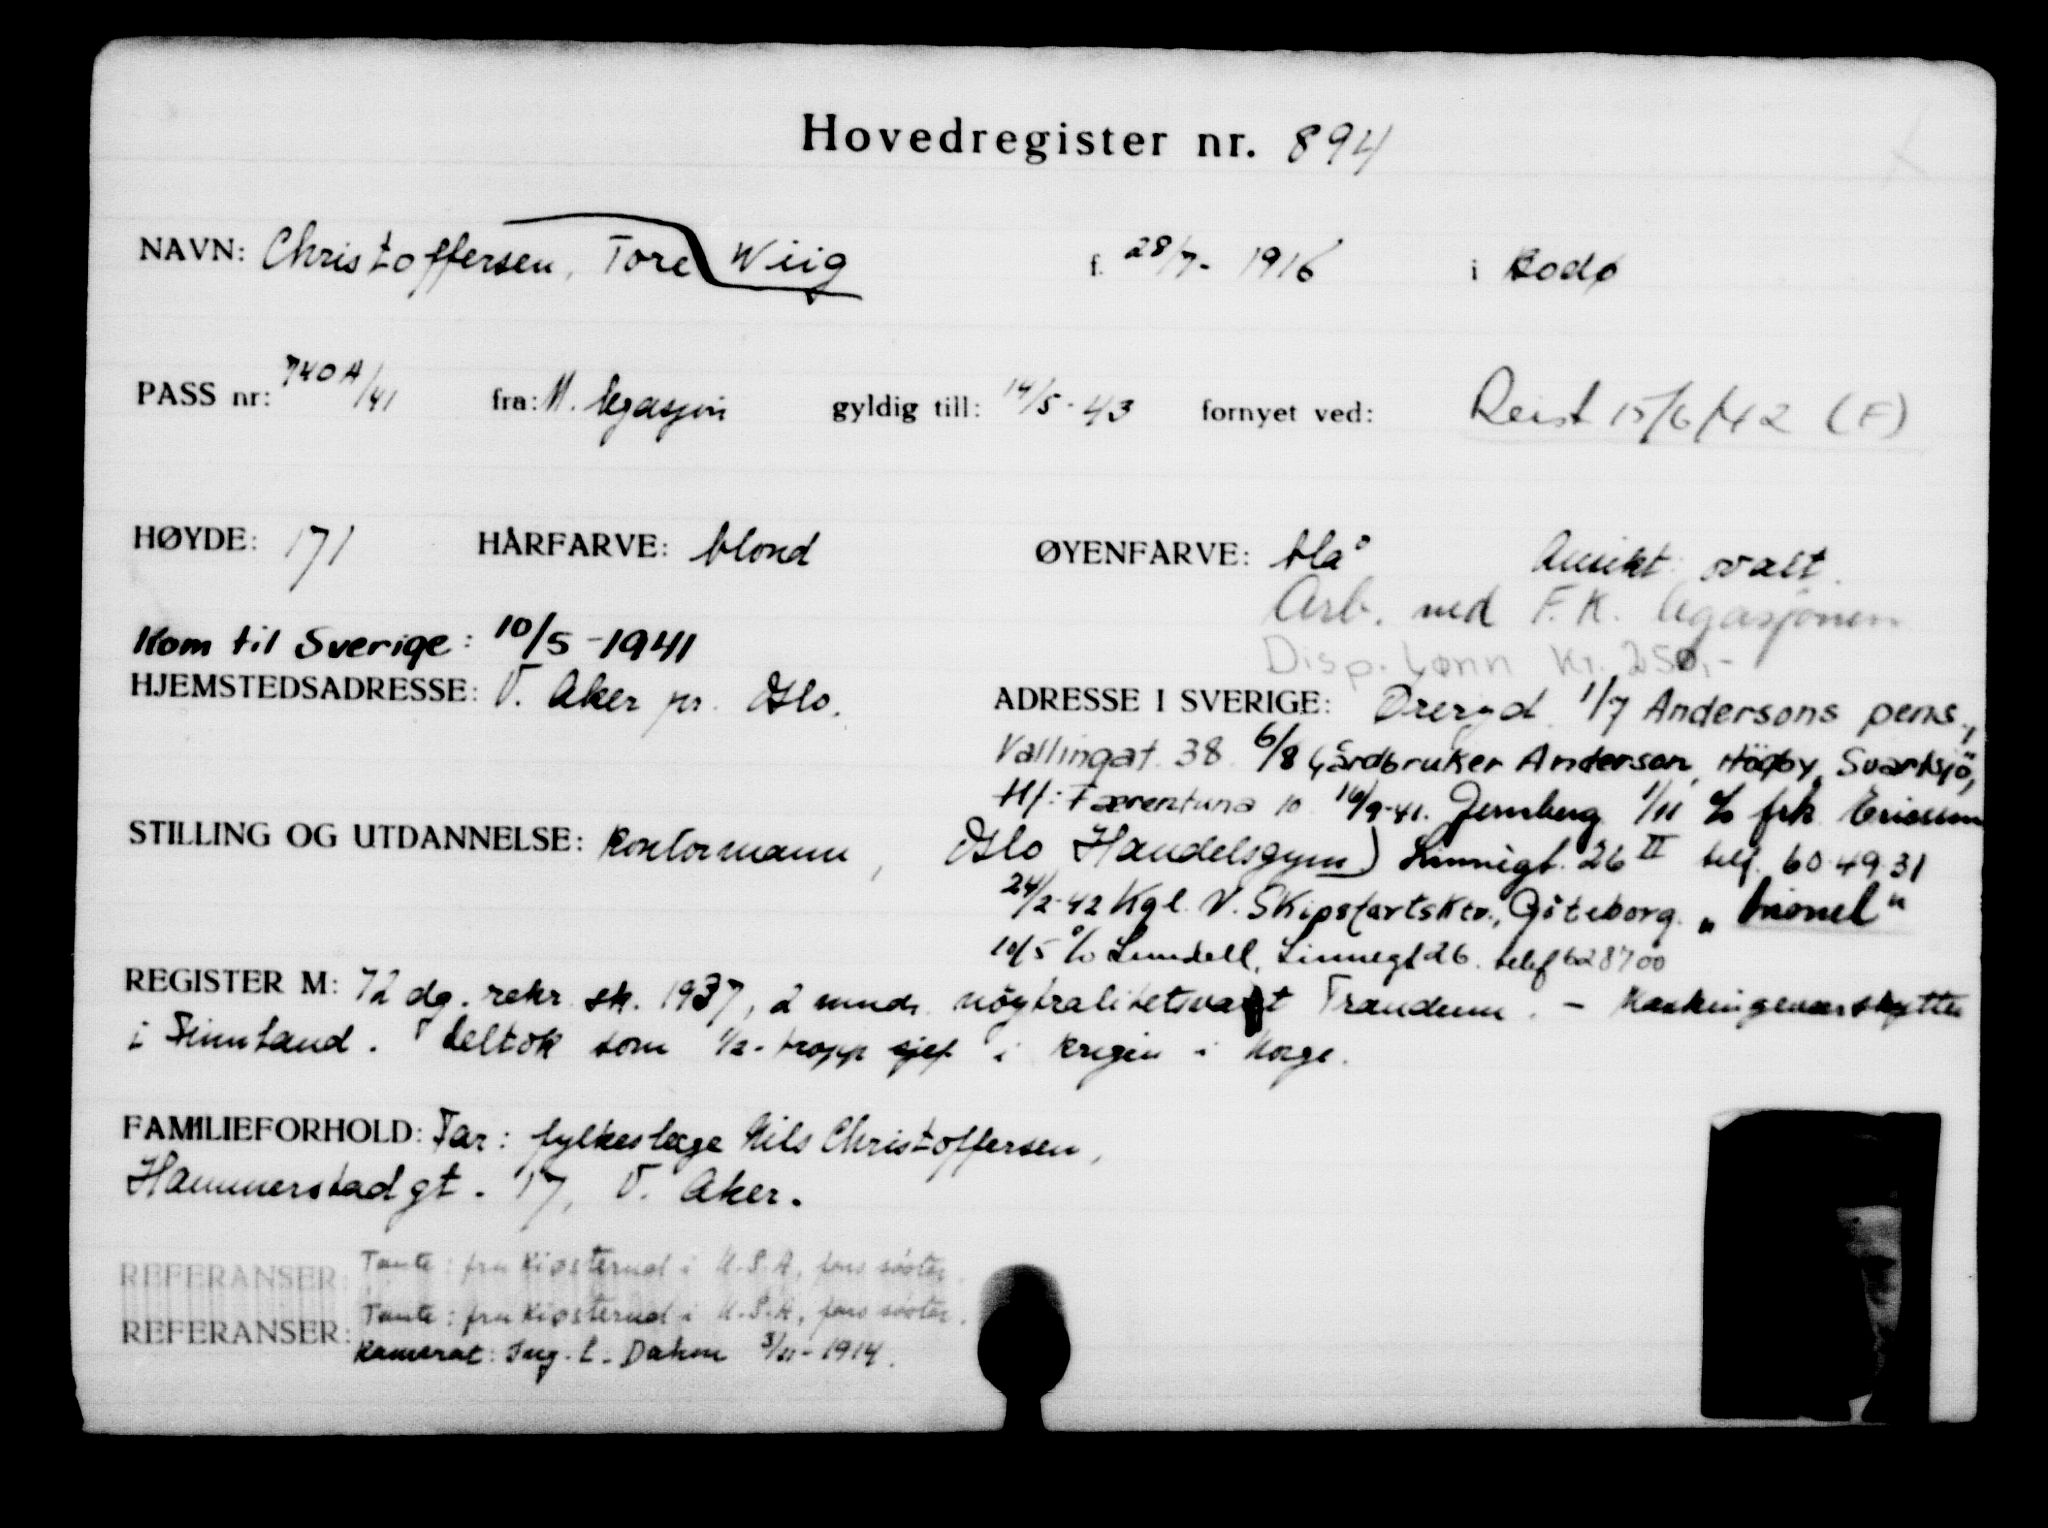 Hovedregister nr. 894
NAVN: Christoffersen, Tore Wiig f. 28/7- 1916 i Bodø
PASS nr: 740A/41 fra: N. legasjon gyldig till: 14/5-43 fornyet ved: Reist 15/6/42 (F)
HØYDE: 171 HÅRFARVE: blond ØYENFARVE: blå Ansikt: ovalt.
Arb. ved F.K. legasjonen
Kom til Sverige: 10/5-1941
Disp. lønn kr. 250,-
HJEMSTEDSADRESSE: V. Aker pr. Oslo.
ADRESSE I SVERIGE: Øreryd 1/7 Andersons pens.,
Vallingat. 38. 6/8 Gårdbruker Anderson, Högby, Svartsjö,
tlf: Færentuna 10. 16/9-41. Jernberg 1/11 c/o frk. Ericsson
STILLING OG UTDANNELSE: Kontormann, Oslo Handelsgym) Linnégt. 26 II telf. 60.49.31
24/2-42 Kgl. N. Skipsfartsktr., Göteborg. „Lionel"
10/5 c/o Lundell, Linnegt 26. telef 628700
REGISTER M: 72 dg. rekr. sk. 1937, 2 mndr. nøytralitetsvakt Trandum. - Maskingeværskytter
i Finnland. Deltok som 1/2-troppsjef i krigen i Norge.
FAMILIEFORHOLD: Far: fylkeslege Nils Christoffersen,
Hammerstadgt. 17, V. Aker.
REFERANSER: Tante: fru Kiøsterud i U.S.A, fars søster.
Tante: fru Kiøsterud i U.S.A, fars søster.
REFERANSER:
Kamerat: Ing. L. Dahm 3/11-1914.